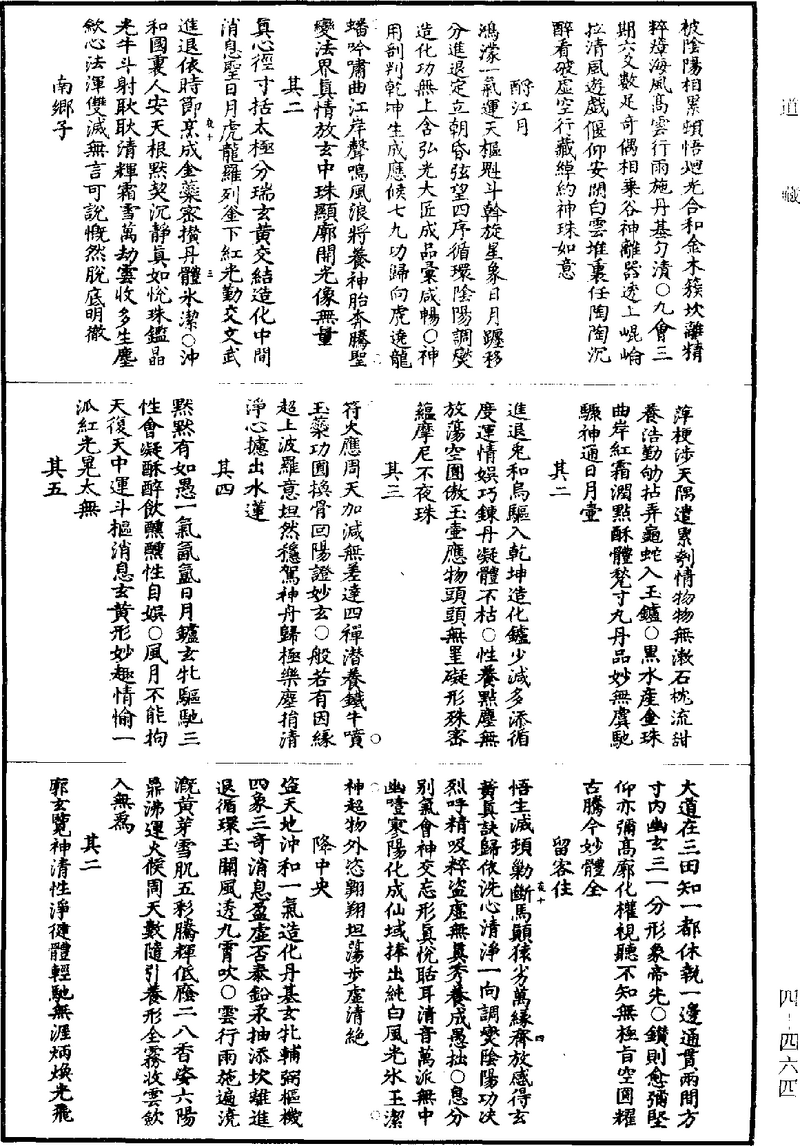 道藏
被陰陽相累頓悟廻光合和金木簇坎離精
粹瓊海風高雲行雨施丹基勻漬○九會三
期六爻數足奇偶相乗谷神離器透上崐崘
拉清風遊戲偃仰安閑白雲堆裏任陶陶沉
醉看破虛空行藏綽約神珠如意
酹江月
鴻濛一氣運天樞魁斗斡旋星象日月躔移
分進退定立朝昏弦望四序循環陰陽調燮
造化功無上含弘光大匠成品彙咸暢○神
用剖判乾坤生成應候七九功歸向虎遶龍
蟠吟嘯曲江岸聲鳴風浪將養神胎奔騰聖
變法界真情放玄中珠顯廓開光像無量
其二
真心徑寸括太極分瑞玄黃交結造化中間
消息聖日月虎龍羅列釜下紅光勤交文武
進退依時節烹成金藥密攅丹體氷潔○沖
和國裏人安天根黙契沉靜真如悅珠鑑晶
光牛斗射耿耿清輝霜雪萬劫雲收多生塵
歛心法渾雙滅無言可說慨然脫底明徹
南鄉子
萍梗涉天隅遣累剗情物物無漱石枕流甜
養浩勤劬拈弄龜蛇入玉鑪○黒水産金珠
曲岸紅霜潤點酥體瑩寸九丹品妙無虞馳
驟神通日月壷
其二
進退兎和烏驅入乾坤造化鑪少減多添循
度運情娛巧鍊丹凝體不枯○性養點塵無
放蕩空圓傲玉壷應物頭頭無罣礙形殊密
蘊摩尼不夜珠
其三
符火應周天加減無差達四禪潜養鐵牛噴
玉藥功圓換骨回陽證妙玄○般若有因緣
超上波羅意坦然穩駕神舟歸極樂塵捐清
淨心攄出水蓮
其四
黙黙有如愚一氣氤氳日月鑪玄牝驅馳三
性會凝酥醉飲醺醺性自娛○風月不能拘
天復天中運斗樞消息玄黃形妙趣情愉一
派紅光晃太無
其五
大道在三田知一都休執一邊通貫兩間方
寸内幽玄三一分形象帝先○鑚則愈彌堅
仰亦彌高廓化權視聽不知無極旨空圓耀
古騰今妙體全
留客住
悟生滅頊勦斷馬顛猿劣萬緣齊放感得玄
黃真訣歸依洗心清淨一向調燮陰陽功决
烈呼精吸粹盜虛無真秀養成愚拙○息分
別氣會神交忘形真悅聒耳清音萬派無中
幽噎寥陽化成仙域捧出純白風光氷玉潔
神超物外恣翺翔坦蕩步虛清絶
降中央
盜天地沖和一氣造化丹基玄牝輔弼樞機
四象三奇消息盈虛否泰鉛汞抽添坎離進
退循環玉關風透九霄吹○雲行雨施遍澆
溉黃芽雪肌五彩騰輝低廕二八香姿六陽
鼎沸運火候周天數隨引養形全霧收雲歛
入無為
其二
廓玄覽神清性淨徤體輕馳無涯炳煥光飛
四-四六四